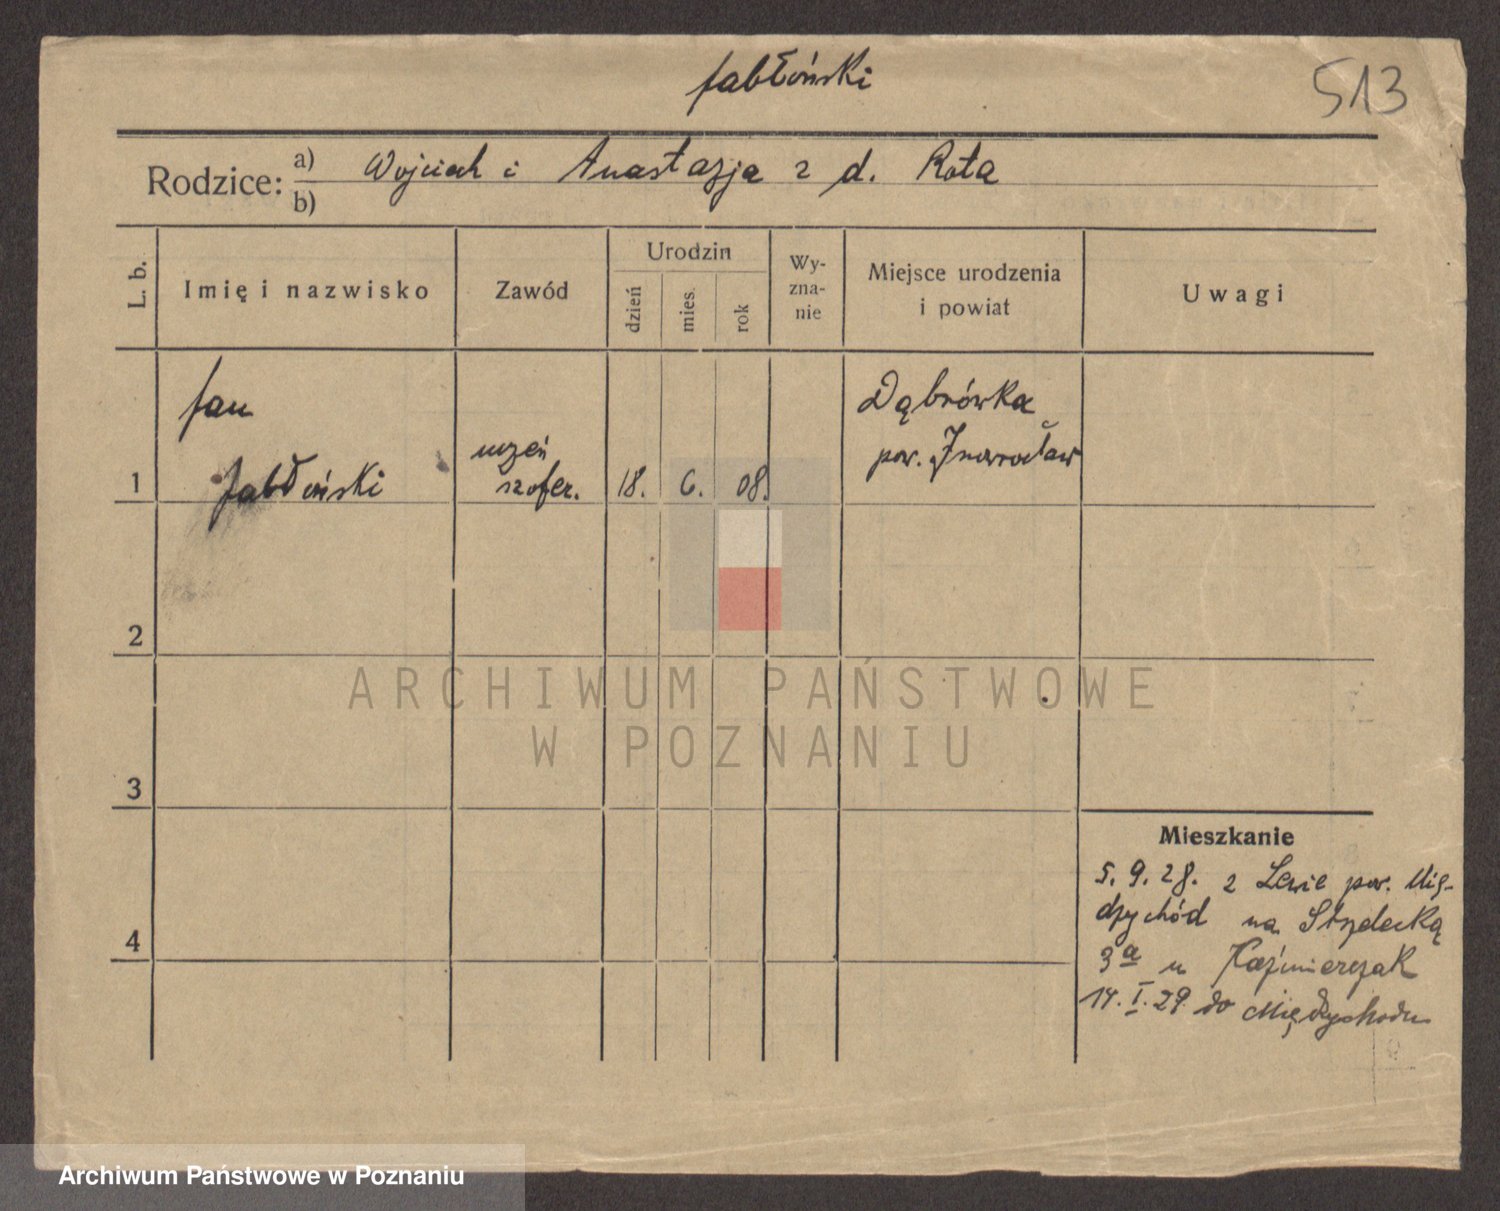 Jabłoński
513
Rodzice: a) Wojciech i Anastazja z d. Rota
b)
L. b.
Imię i nazwisko
Zawód
Urodzin
dzień
mies.
rok
Wy-
zna-
nie
Miejsce urodzenia
i powiat
Uwagi
Jan
Jabłoński
uczeń
szofer.
18. 6. 08.
Dąbrówka
pow. Inowrocław
1
2
3
4
Mieszkanie
5. 9. 28. z Lewic pow. Mię-
dzychód na Strzelecką
3a u Kaźmierczak
14. I. 29 do Międzychodu
ARCHIWUM PAŃSTWOWE
W POZNANIU
Archiwum Państwowe w Poznaniu